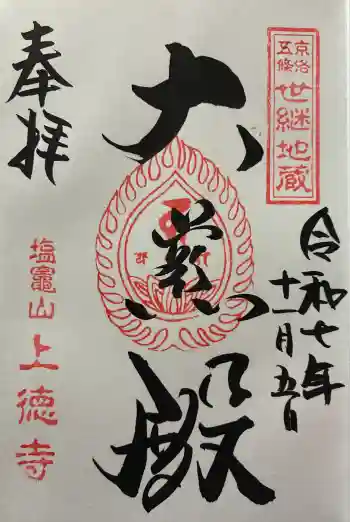 京洛五條
世継地蔵
奉拝
大悲殿
令和七年
十一月五日
塩竈山
上徳寺